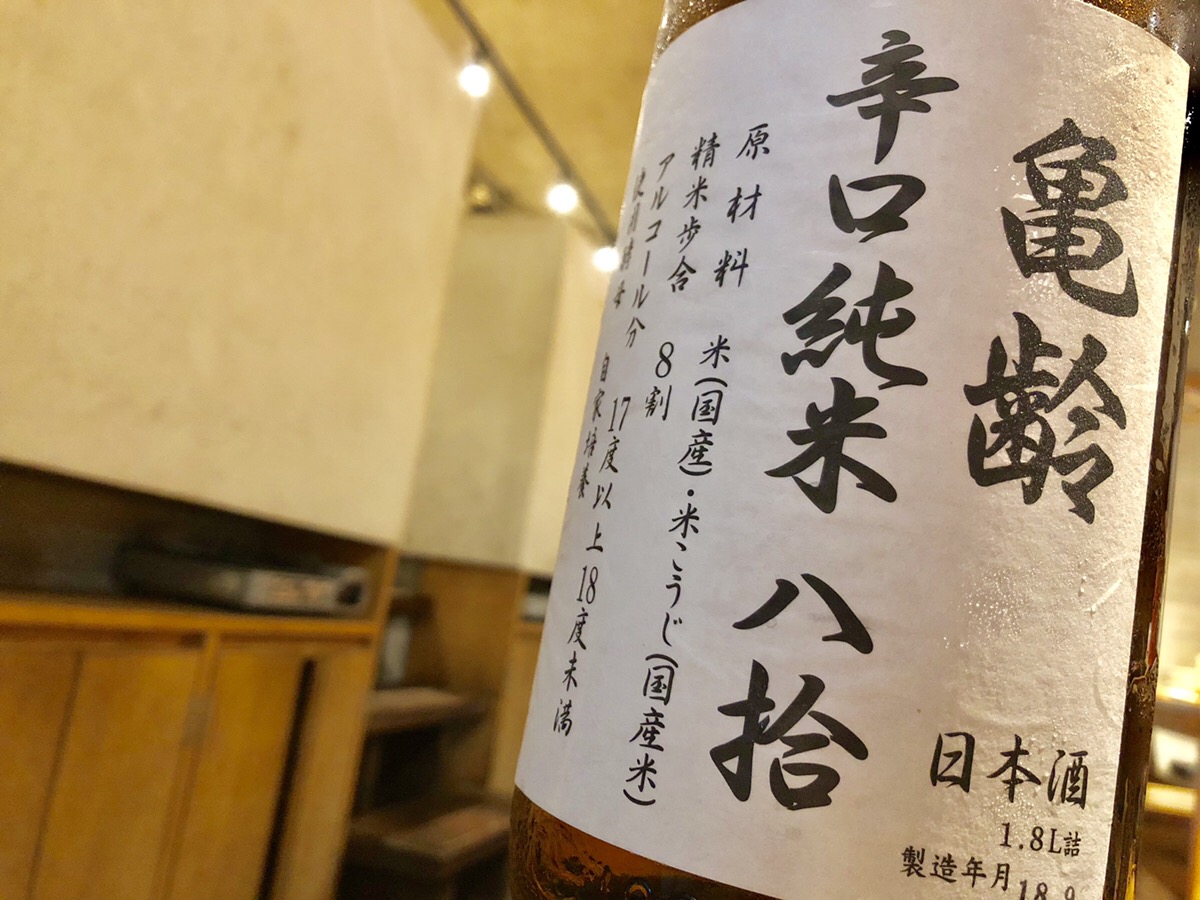 亀齢
辛口純米 八拾
原材料 米(国産)・米こうじ(国産米)
精米歩合 8割
アルコール分 17度以上18度未満
使用酵母 自家培養
日本酒
1.8L詰
製造年月 18.9